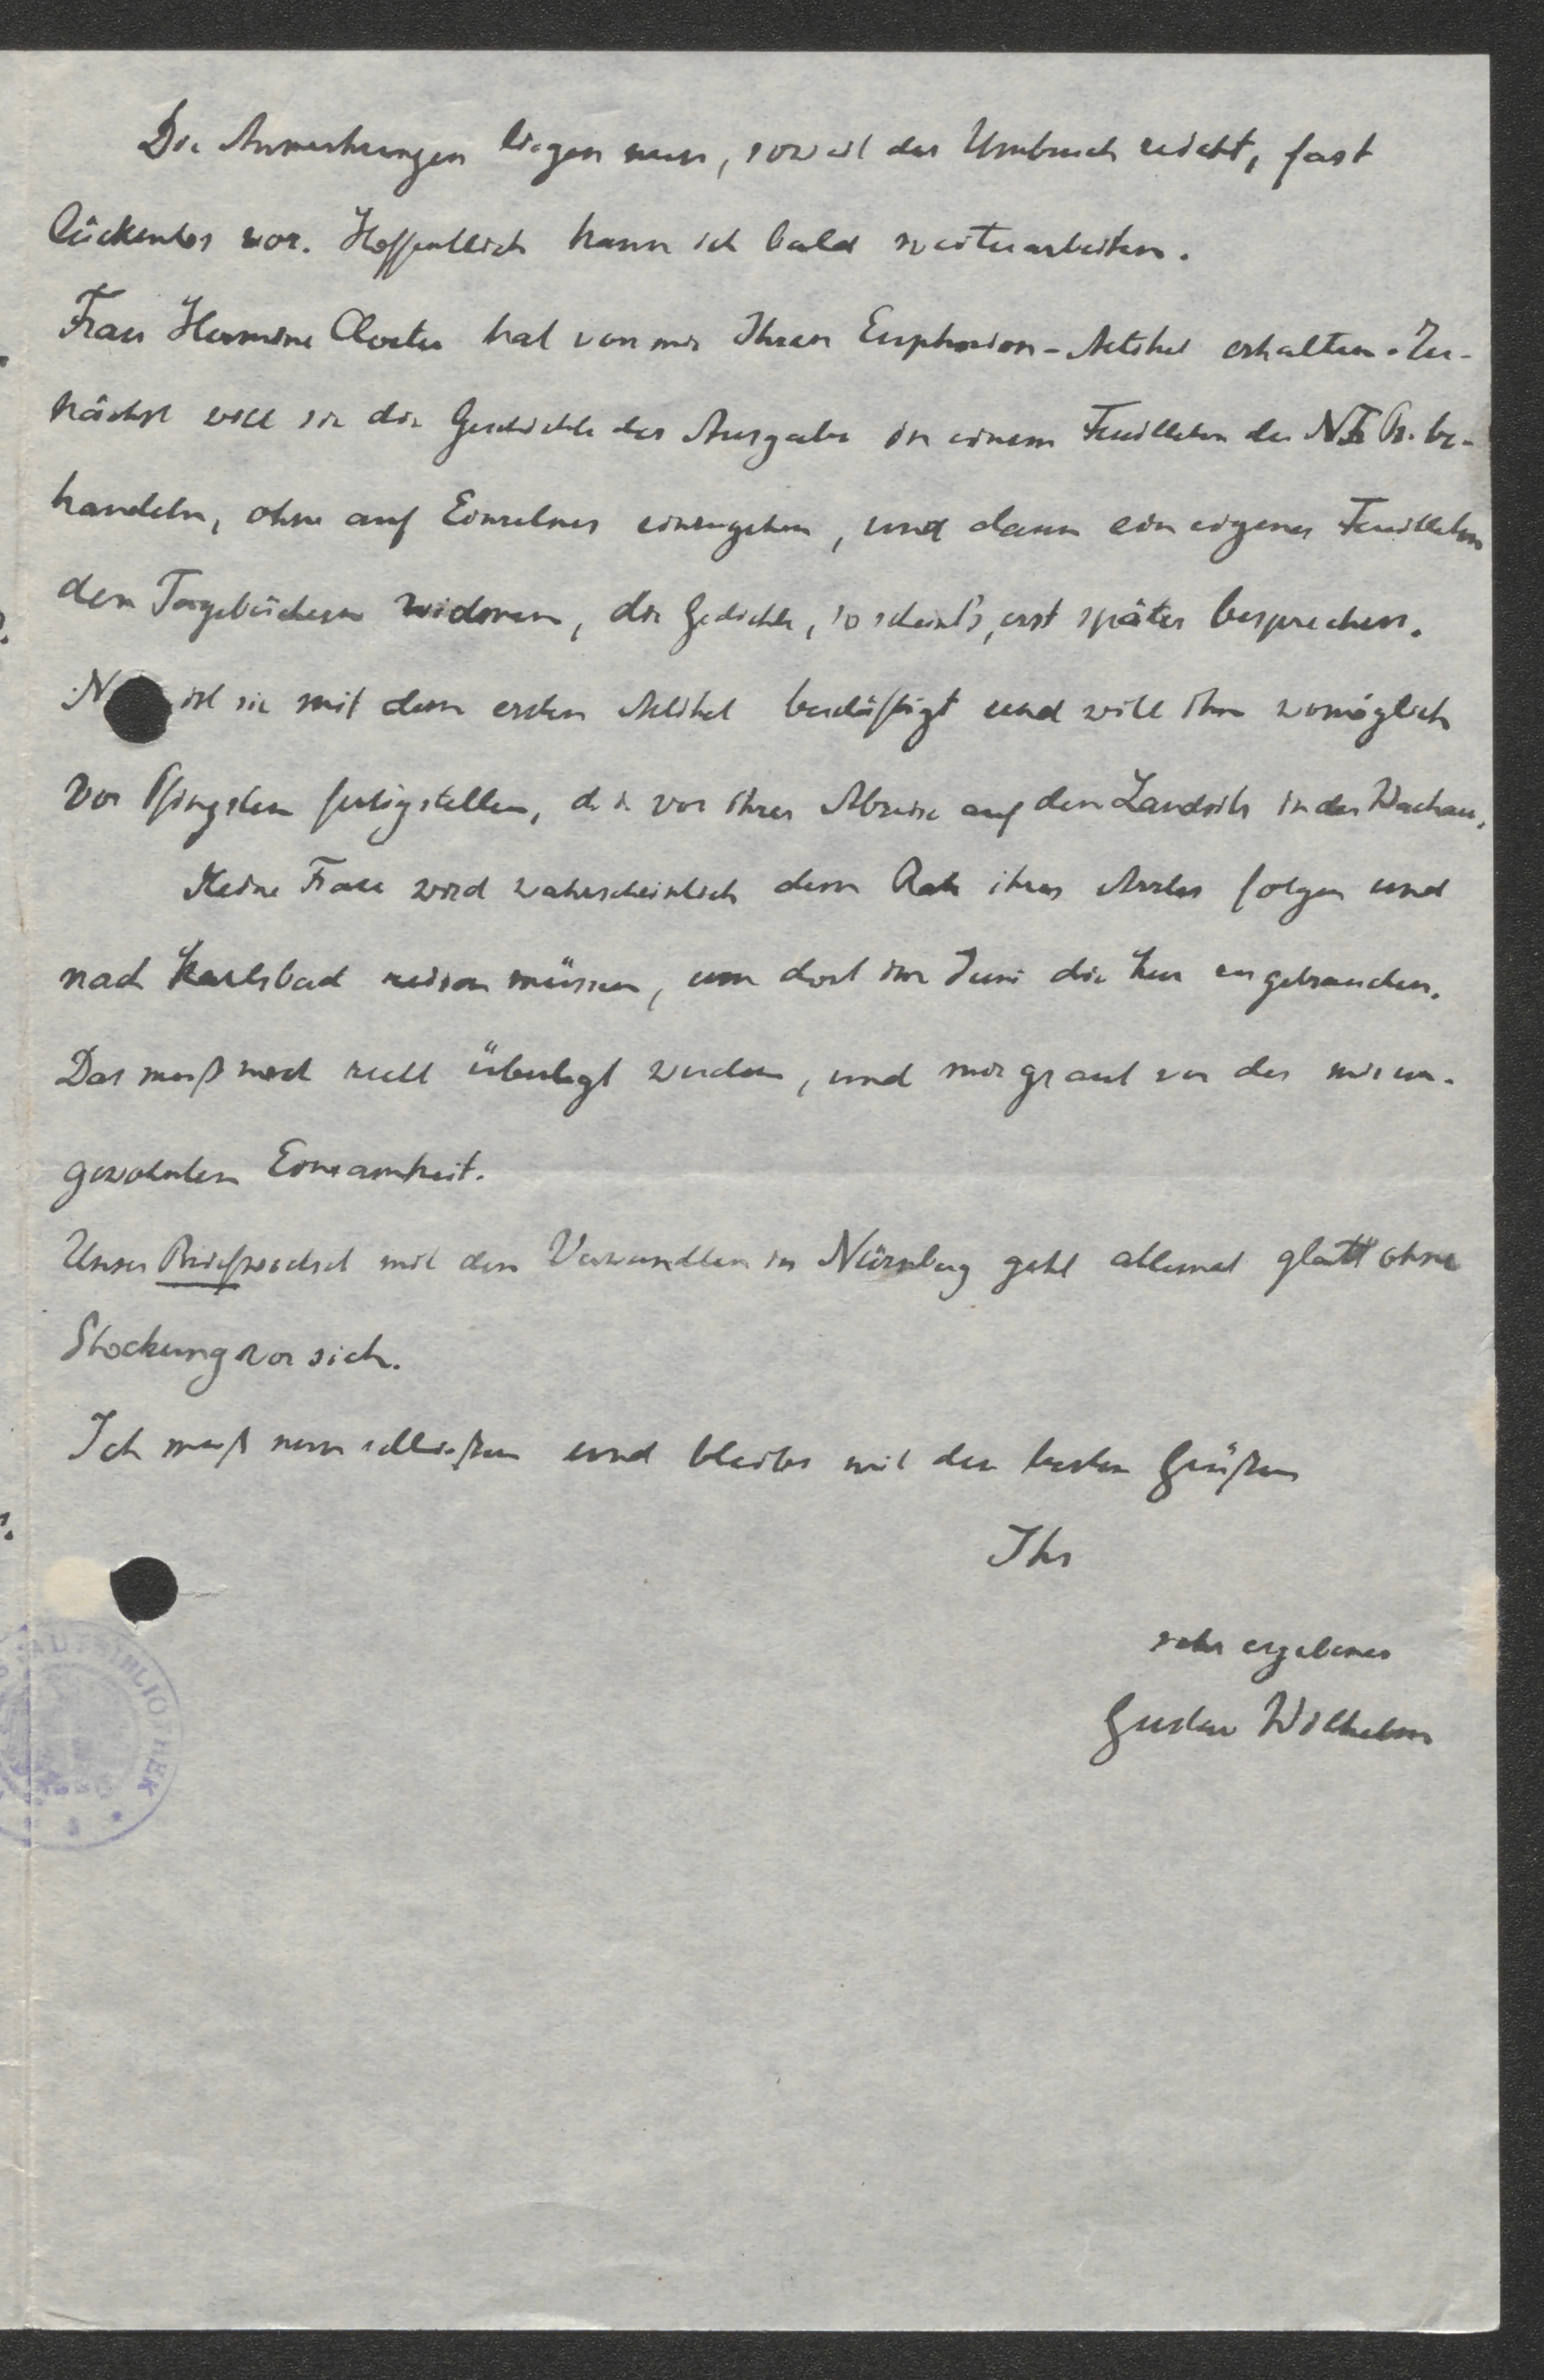 Die Anmerkungen liegen nun, soweit der Umbruch reicht, fast
lückenlos vor. Hoffentlich kann ich bald weiterarbeiten.
Frau Hermine Cloeter hat von mir Ihren Euphorion-Artikel erhalten. Zu-
nächst will sie die Geschichte der Ausgabe in einem Feuilleton der N Fr Pr. be-
handeln, ohne auf Einzelnes einzugehen, und dann ein eigenes Feuilleton
den Tagebüchern widmen, die Gedichte, so scheint's, erst später besprechen.
N ist sie mit dem ersten Artikel beschäftigt und will ihn womöglich
vor Pfingsten fertigstellen, d. i. vor ihrer Abreise auf den Landsitz in der Wachau.
Meine Frau wird wahrscheinlich dem Rate ihres Arztes folgen und
nach Karlsbad reisen müssen, um dort im Juni die Kur zu gebrauchen.
Das muß noch recht überlegt werden, und mir graut vor der mir un-
gewohnten Einsamkeit.
Unser Briefwechsel mit den Verwandten in Nürnberg geht allemal glatt ohne
Stockung vor sich.
Ich muß nun schließen und bleibe mit den besten Grüßen
Ihr
sehr ergebener
Gustav Wilhelm
BIBLIOTHEK